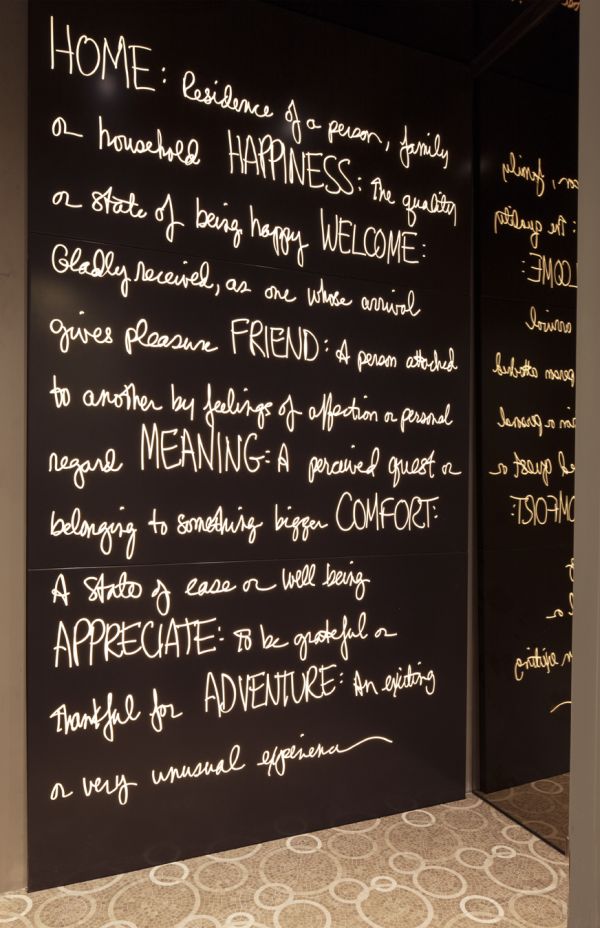 HOME: Residence of a person, family
or household HAPPINESS: The quality
or state of being happy WELCOME:
Gladly received, as one whose arrival
gives pleasure FRIEND: A person attached
to another by feelings of affection or personal
regard MEANING: A perceived quest or
belonging to something bigger COMFORT:
A state of ease or well being
APPRECIATE: To be grateful or
thankful for ADVENTURE: An exciting
or very unusual experience